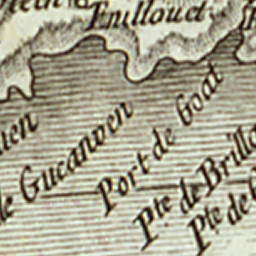 Enillouet
le Gucanven
Port de Goat
Pte de Brillo
Pte de